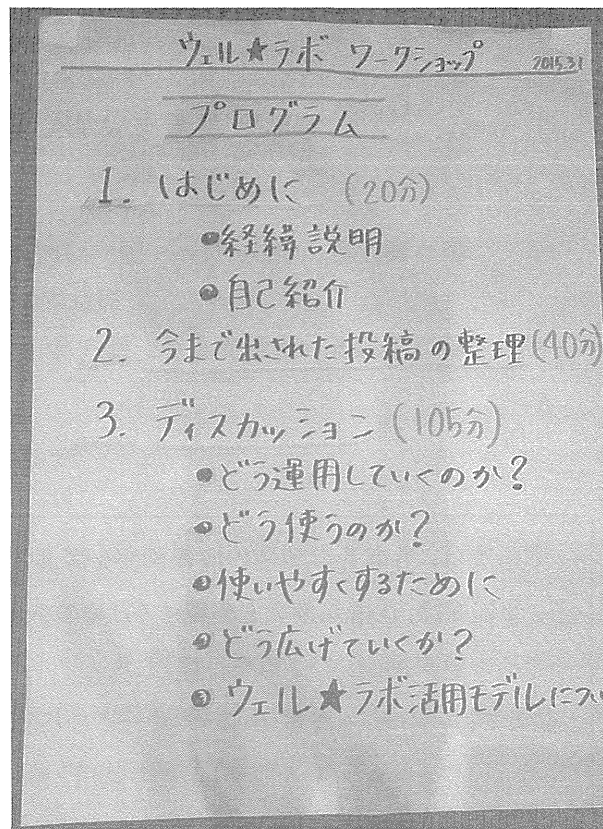 ウェル★ラボ ワークショップ 2015.3.1
プログラム
1. はじめに (20分)
●経緯説明
●自己紹介
2. 今まで出された投稿の整理(40分)
3. ディスカッション(105分)
●どう運用していくのか?
●どう使うのか?
●使いやすくするために
●どう広げていくか?
●ウェル★ラボ活用モデルについ